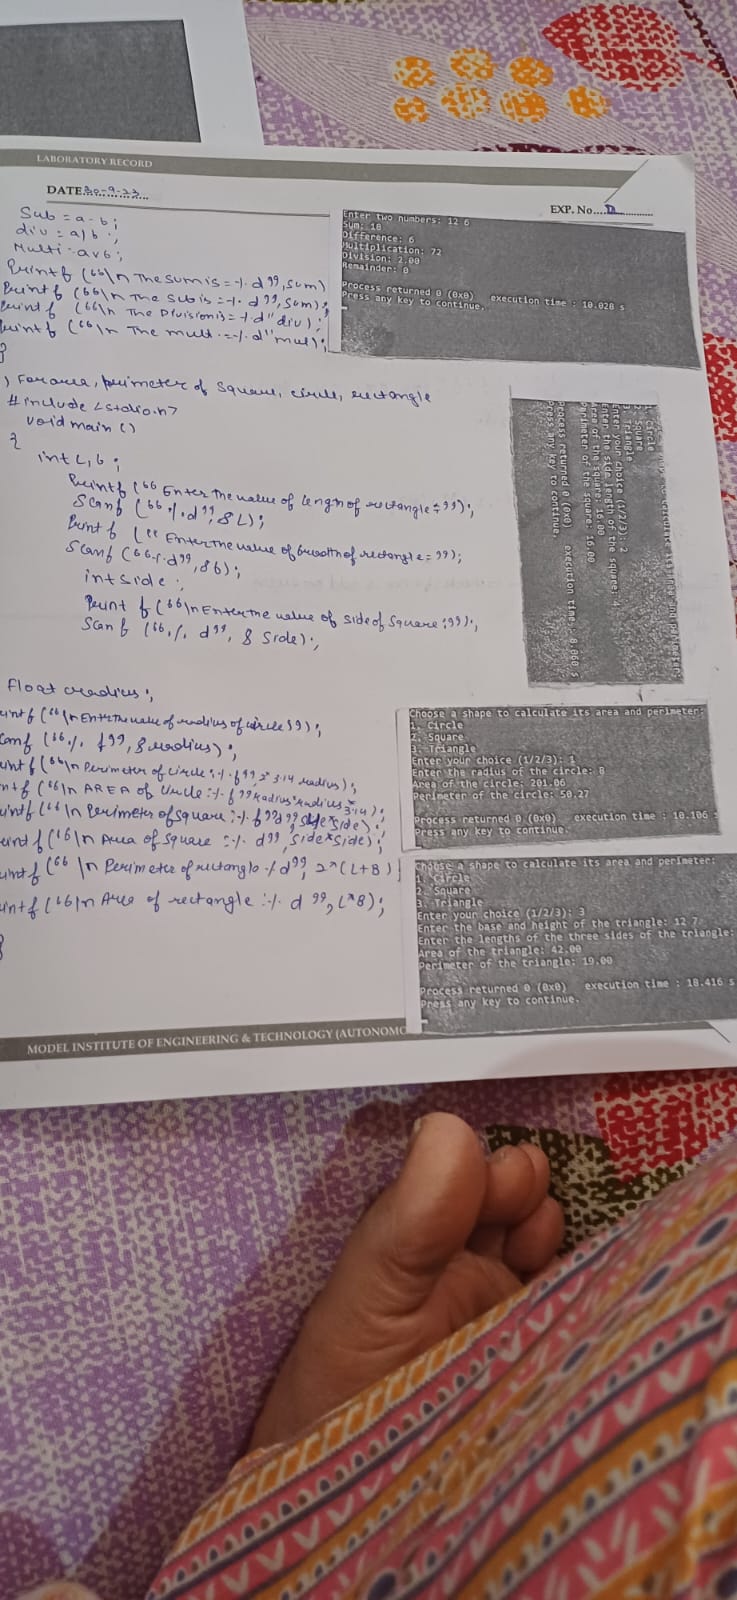 LABORATORY RECORD
DATE 30-9-23
EXP. No....
Sub = a-b;
div = a/b;
Multi = a*b;
Printf ("\n The sum is = %d", sum)
Printf ("\n The sub is = %d", sum);
Printf ("\n The Division is = %d" div);
Printf ("\n The mult = %d" mul);
}
Enter two numbers: 12 6
Sum: 18
Difference: 6
Multiplication: 72
Division: 2.00
Remainder: 0
Process returned 0 (0x0) execution time : 10.028 s
Press any key to continue.
) For area, perimeter of square, circle, rectangle
#include <stdio.h>
void main ()
{
int L, b;
Printf ("Enter the value of length of rectangle = ");
Scanf ("%d", &L);
Printf ("Enter the value of breadth of rectangle = ");
Scanf ("%d", &b);
int side;
Print f ("\n Enter the value of side of square : ");
Scan f ("%d", & Side);
1. Circle
2. Square
3. Triangle
Enter your choice (1/2/3): 2
Enter the side length of the square: 4
Area of the square: 16.00
Perimeter of the square: 16.00
Process returned 0 (0x0) execution time : 8.060 s
Press any key to continue.
Float radius;
intf ("\n Enter the value of radius of circle");
canf ("% f", & radius);
intf ("\n Perimeter of circle : % f", 2* 3.14 radius);
ntf ("\n AREA of circle : % f" radius*radius*3.14);
intf ("\n Perimeter of Square : % side);
rintf ("\n Area of Square : % d", side*side);
intf ("\n Perimeter of rectangle % d", 2*(L+B)
intf ("\n Area of rectangle : % d", L*B);
}
Choose a shape to calculate its area and perimeter:
1. Circle
2. Square
3. Triangle
Enter your choice (1/2/3): 1
Enter the radius of the circle: 8
Area of the circle: 201.06
Perimeter of the circle: 50.27
Process returned 0 (0x0) execution time : 10.106 s
Press any key to continue.
Choose a shape to calculate its area and perimeter:
1. Circle
2. Square
3. Triangle
Enter your choice (1/2/3): 3
Enter the base and height of the triangle: 12 7
Enter the lengths of the three sides of the triangle:
Area of the triangle: 42.00
Perimeter of the triangle: 19.00
Process returned 0 (0x0) execution time : 18.416 s
Press any key to continue.
MODEL INSTITUTE OF ENGINEERING & TECHNOLOGY (AUTONOMO